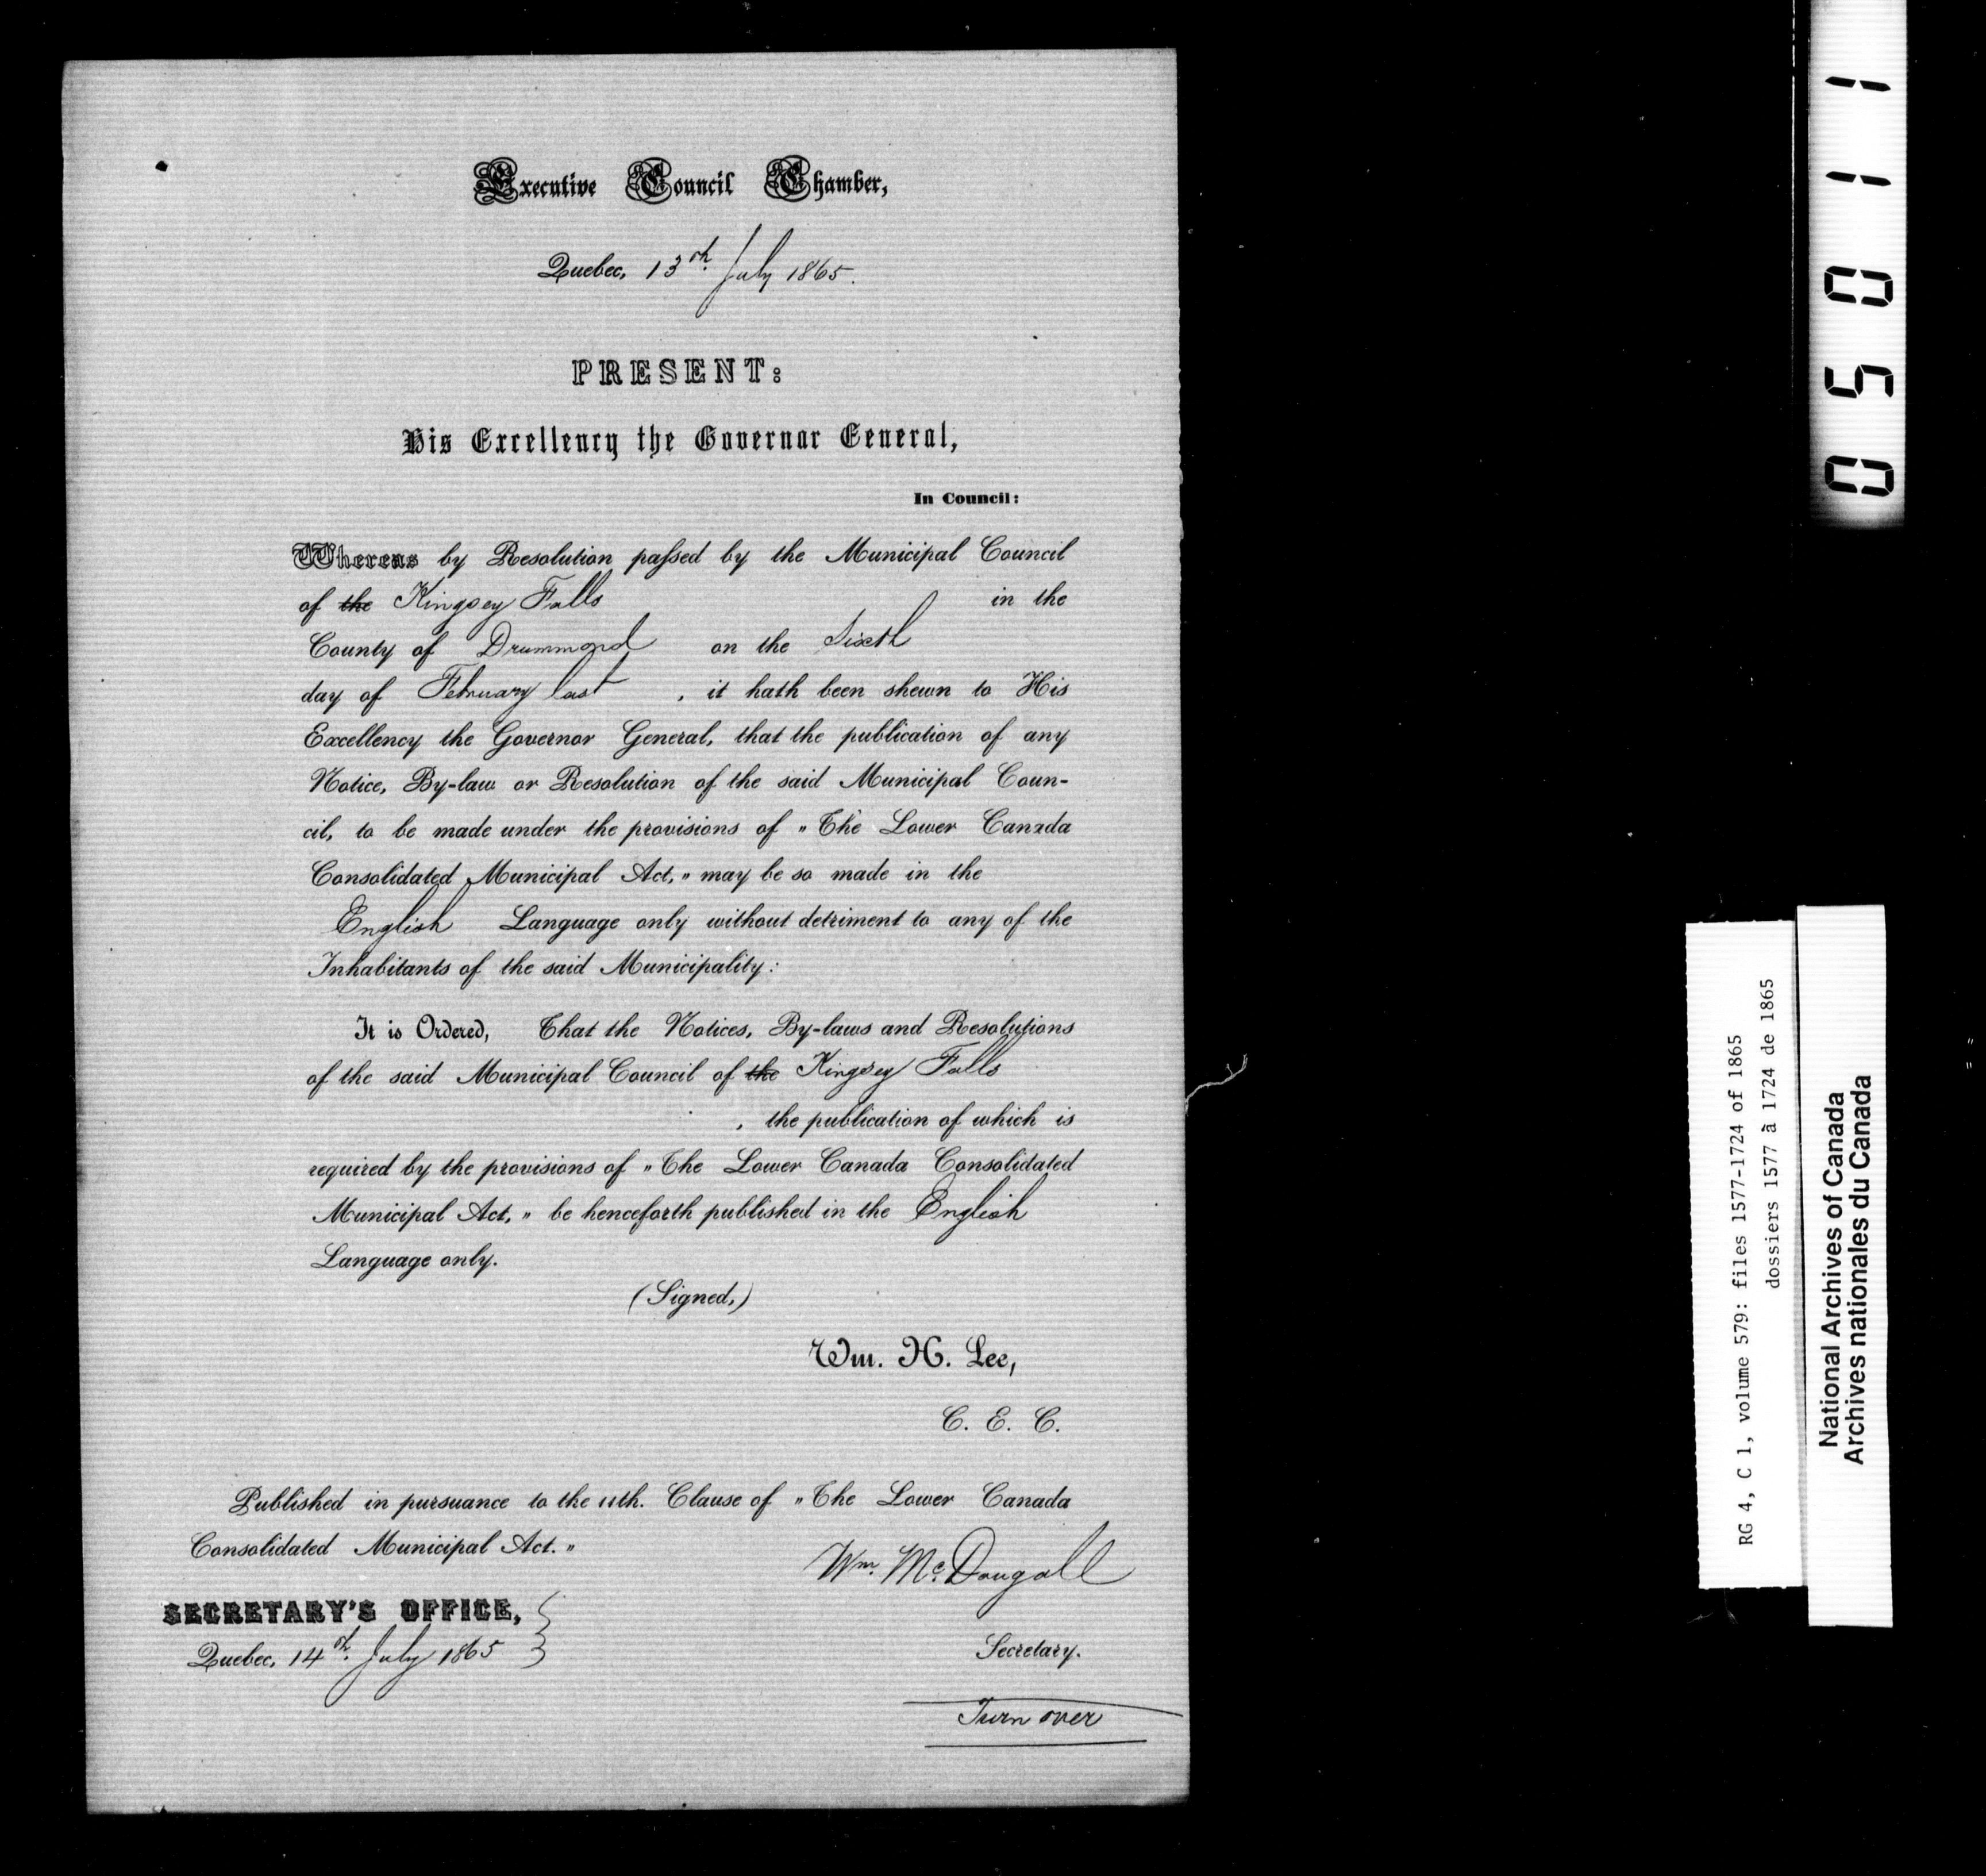 Executive Council Chamber,
Quebec, 13th. July 1865.
PRESENT:
His Excellency the Governor General,
In Council:
Whereas by Resolution passed by the Municipal Council
of the Kingsey Falls in the
County of Drummond on the Sixth
day of February last , it hath been shewn to His
Excellency the Governor General, that the publication of any
Notice, By-law or Resolution of the said Municipal Coun-
cil, to be made under the provisions of "The Lower Canada
Consolidated Municipal Act," may be so made in the
English Language only without detriment to any of the
Inhabitants of the said Municipality:
It is Ordered, That the Notices, By-laws and Resolutions
of the said Municipal Council of the Kingsey Falls
, the publication of which is
required by the provisions of "The Lower Canada Consolidated
Municipal Act," be henceforth published in the English
Language only.
(Signed,)
Wm. H. Lee,
C. E. C.
Published in pursuance to the 11th. Clause of "The Lower Canada
Consolidated Municipal Act."
Wm. McDougall
SECRETARY'S OFFICE,
Quebec, 14th. July 1865
Secretary.
Turn over
05011
RG 4, C 1, volume 579: files 1577-1724 of 1865
dossiers 1577 à 1724 de 1865
National Archives of Canada
Archives nationales du Canada